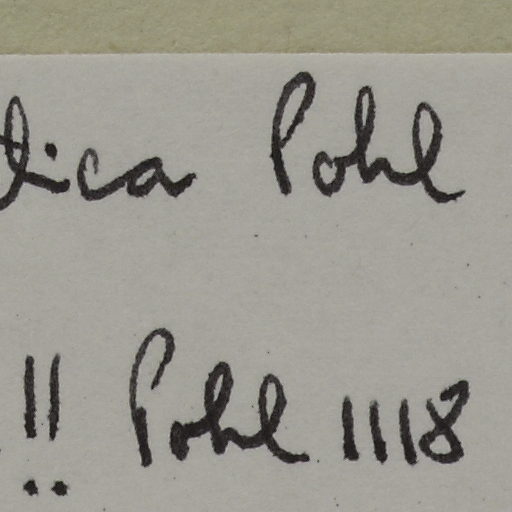 tica Pohl
!! Pohl 1118